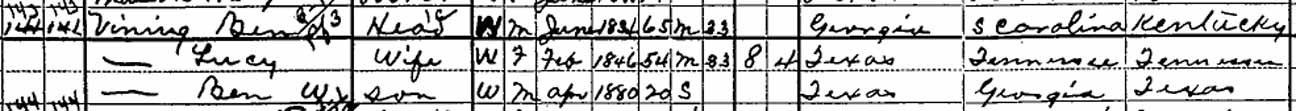 144 142 Vining Ben Head W M June 1834 65 M 33 Georgia S Carolina Kentucky
— Lucy Wife W F Feb 1846 54 M 33 8 4 Texas Tennessee Tennessee
— Ben W son W M apr 1880 20 S Texas Georgia Texas
144 144